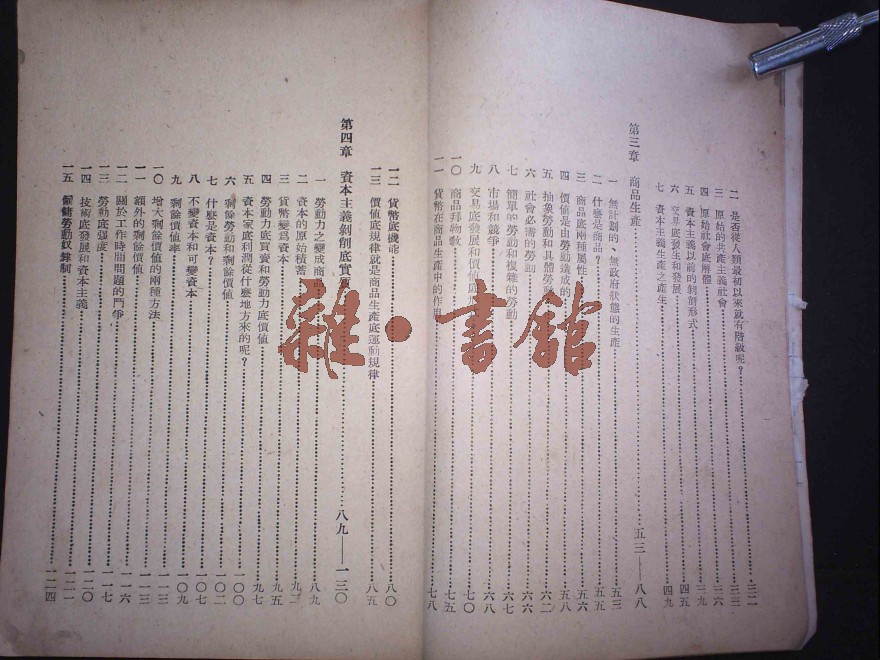 二 是否從人類最初以來就有階級呢？……三二
三 原始的共產主義社會……三三
四 原始社會底解體……三六
五 資本主義以前的剝削形式……三九
六 交易底發生和發展……四五
七 資本主義生產之產生……四九
第三章 商品生產……五三—八八
一 無計劃的、無政府狀態的生產……五三
二 什麼是商品？……五五
三 商品底兩種屬性……
四 價值是由勞動造成的……五八
五 抽象勞動和具體勞動……六二
六 社會必需的勞動……六六
七 簡單的勞動和複雜的勞動……六七
八 市場和競爭……六八
九 交易底發展和價值底……七〇
一〇 商品拜物教……七五
一一 貨幣在商品生產中的作用……七八
一二 貨幣底機能……八〇
一三 價值底規律就是商品生產底運動規律……八五
第四章 資本主義剝削底實質……八九—一三〇
一 勞動力之變成商品……八九
二 資本的原始積蓄……九二
三 貨幣變爲資本……九五
四 勞動力底買賣和勞動力底價值……九七
五 資本家底利潤從什麼地方來的呢？……一〇〇
六 剩餘勞動和剩餘價值……一〇二
七 什麼是資本？……一〇七
八 不變資本和可變資本……一〇九
九 剩餘價值率……一一三
一〇 增大剩餘價值的兩種方法……一一三
一一 額外的剩餘價值……一一六
一二 關於工作時間問題的鬥爭……一一七
一三 勞動底强度……一二〇
一四 技術底發展和資本主義……一二一
一五 僱傭勞動奴隸制……一二四
雜·書館